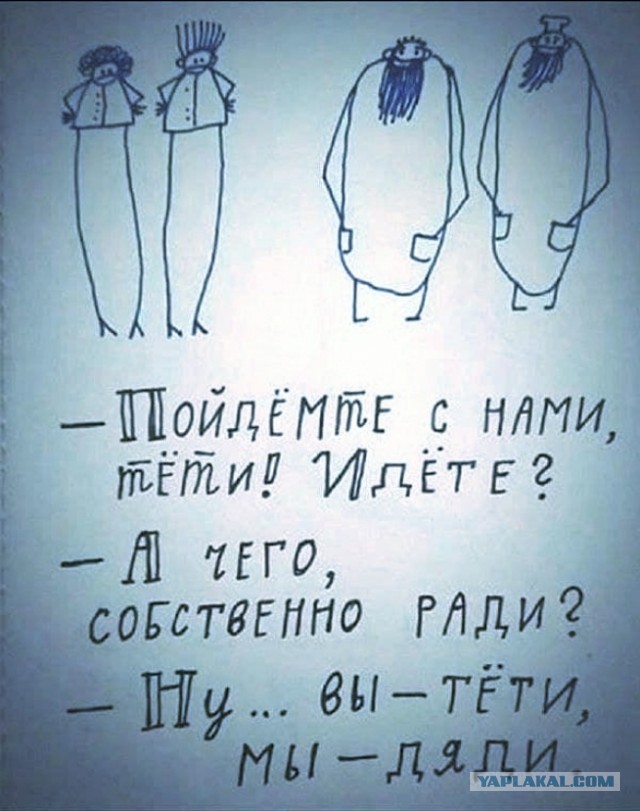 — Пойдёмте с нами,
тёти! Идёте?
— А чего,
собственно ради?
— Ну... вы — тёти,
мы — дяди.
YAPLAKAL.COM